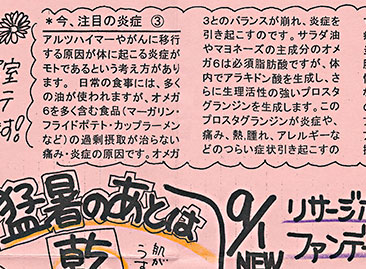 ＊今、注目の炎症 ③
アルツハイマーやがんに移行
する原因が体に起こる炎症が
モトであるという考え方があり
ます。 日常の食事には、多く
の油が使われますが、オメガ
6を多く含む食品(マーガリン・
フライドポテト・カップラーメン
など)の過剰摂取が治らない
痛み・炎症の原因です。オメガ
3とのバランスが崩れ、炎症を
引き起こすのです。サラダ油
やマヨネーズの主成分のオメ
ガ6は必須脂肪酸ですが、体
内でアラキドン酸を生成し、さ
らに生理活性の強いプロスタ
グランジンを生成します。この
プロスタグランジンが炎症や、
痛み、熱、腫れ、アレルギーな
どのつらい症状引き起こすの
室
テ
す!
猛暑のあとは
乾
肌が
うす
9/1
NEW
リサージ
ファンデ